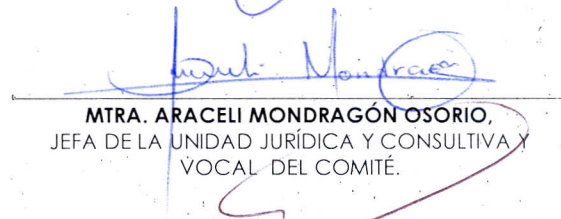 Araceli Mondragón
MTRA. ARACELI MONDRAGÓN OSORIO,
JEFA DE LA UNIDAD JURÍDICA Y CONSULTIVA Y
VOCAL DEL COMITÉ.